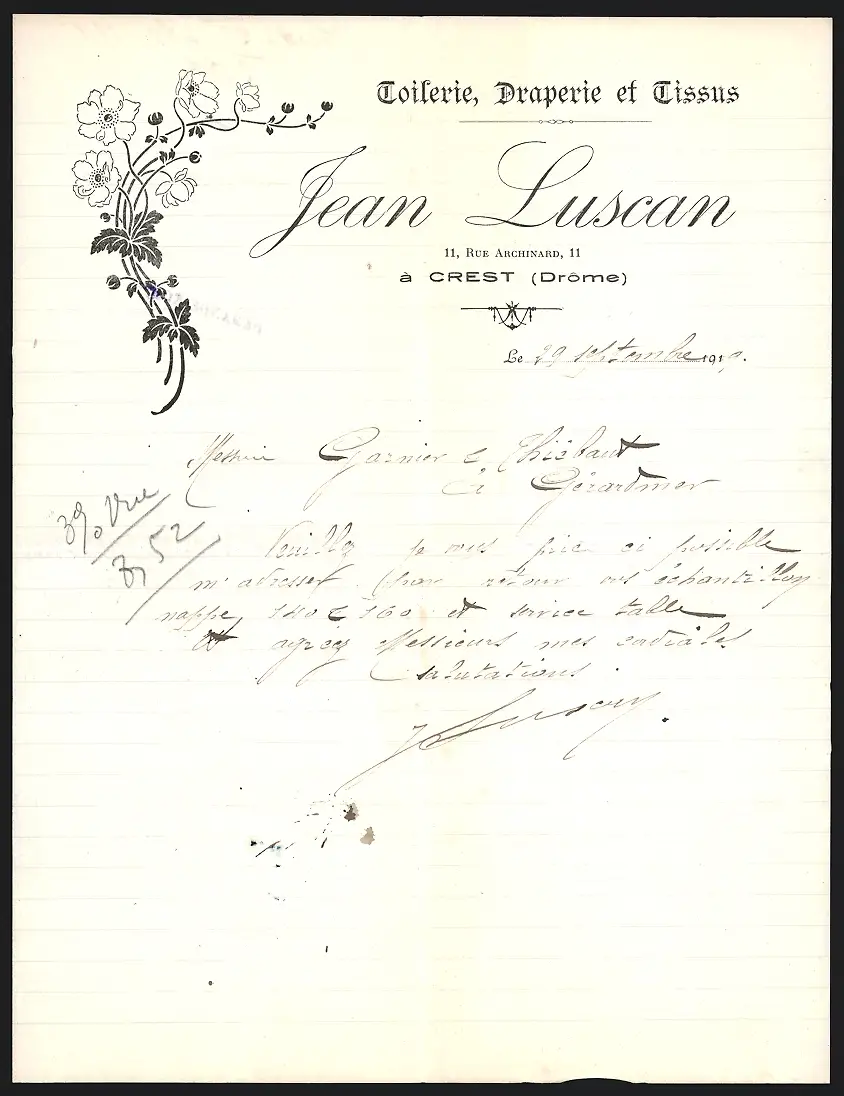 Toilerie, Draperie et Tissus
Jean Luscan
11, Rue Archinard, 11
à CREST (Drôme)
Le 29 septembre 191
Messieurs Garnier & Thiébaut
à Gérardmer
3% Vue
3,52
Veuillez je vous prie ci possible
m'adresser par retour vos échantillon
nappe, 140 & 160 et service table
et agréez Messieurs mes cordiales
salutations
J Luscan